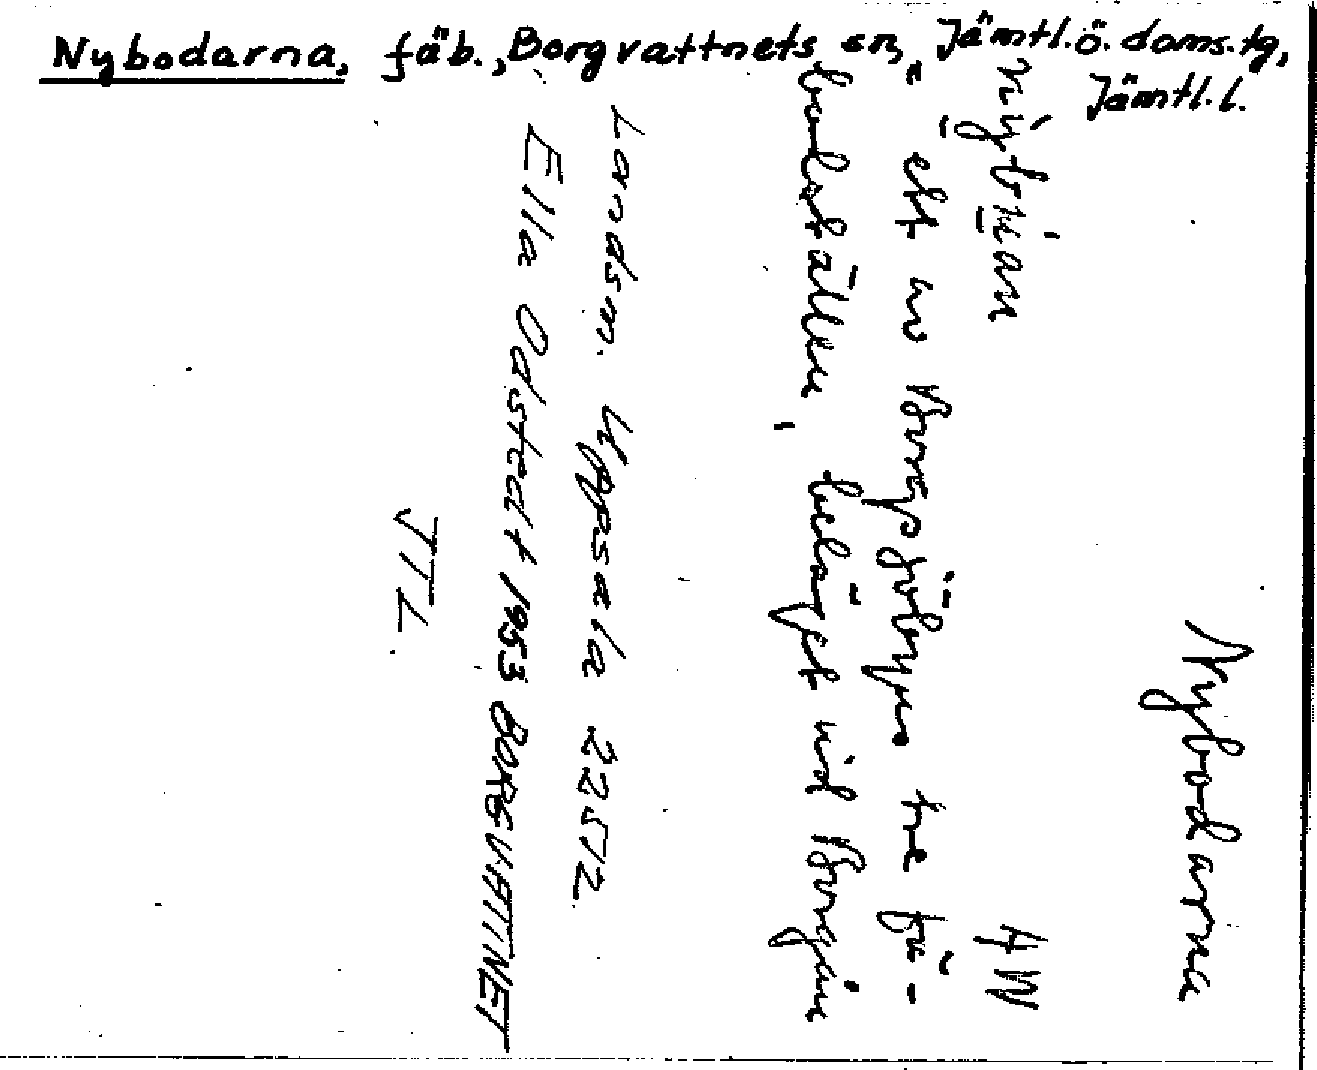 Nybodarna, fäb., Borgvattnets sn, Jämtl.ö. doms.tg,
Jämtl.l.
Nybodarna
AW
ett av Borgsjöbyns tre fä-
bodställen, beläget vid Borgån
Landsm. Uppsala 22572
Ella Odstedt 1953 BORGVATTNET
JTL